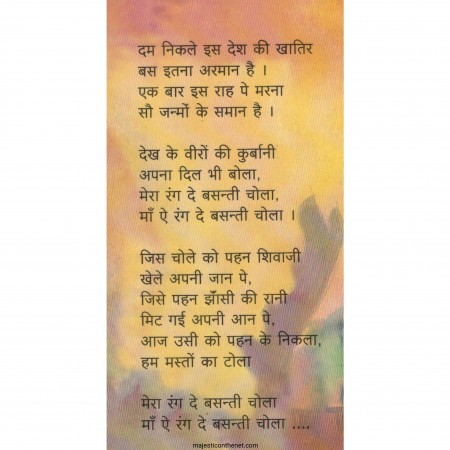 दम निकले इस देश की खातिर
बस इतना अरमान है ।
एक बार इस राह पे मरना
सौ जन्मों के समान है ।
देख के वीरों की कुर्बानी
अपना दिल भी बोला,
मेरा रंग दे बसन्ती चोला,
माँ ऐ रंग दे बसन्ती चोला ।
जिस चोले को पहन शिवाजी
खेले अपनी जान पे,
जिसे पहन झाँसी की रानी
मिट गई अपनी आन पे,
आज उसी को पहन के निकला,
हम मस्तों का टोला
मेरा रंग दे बसन्ती चोला
माँ ऐ रंग दे बसन्ती चोला ....
majesticonthenet.com